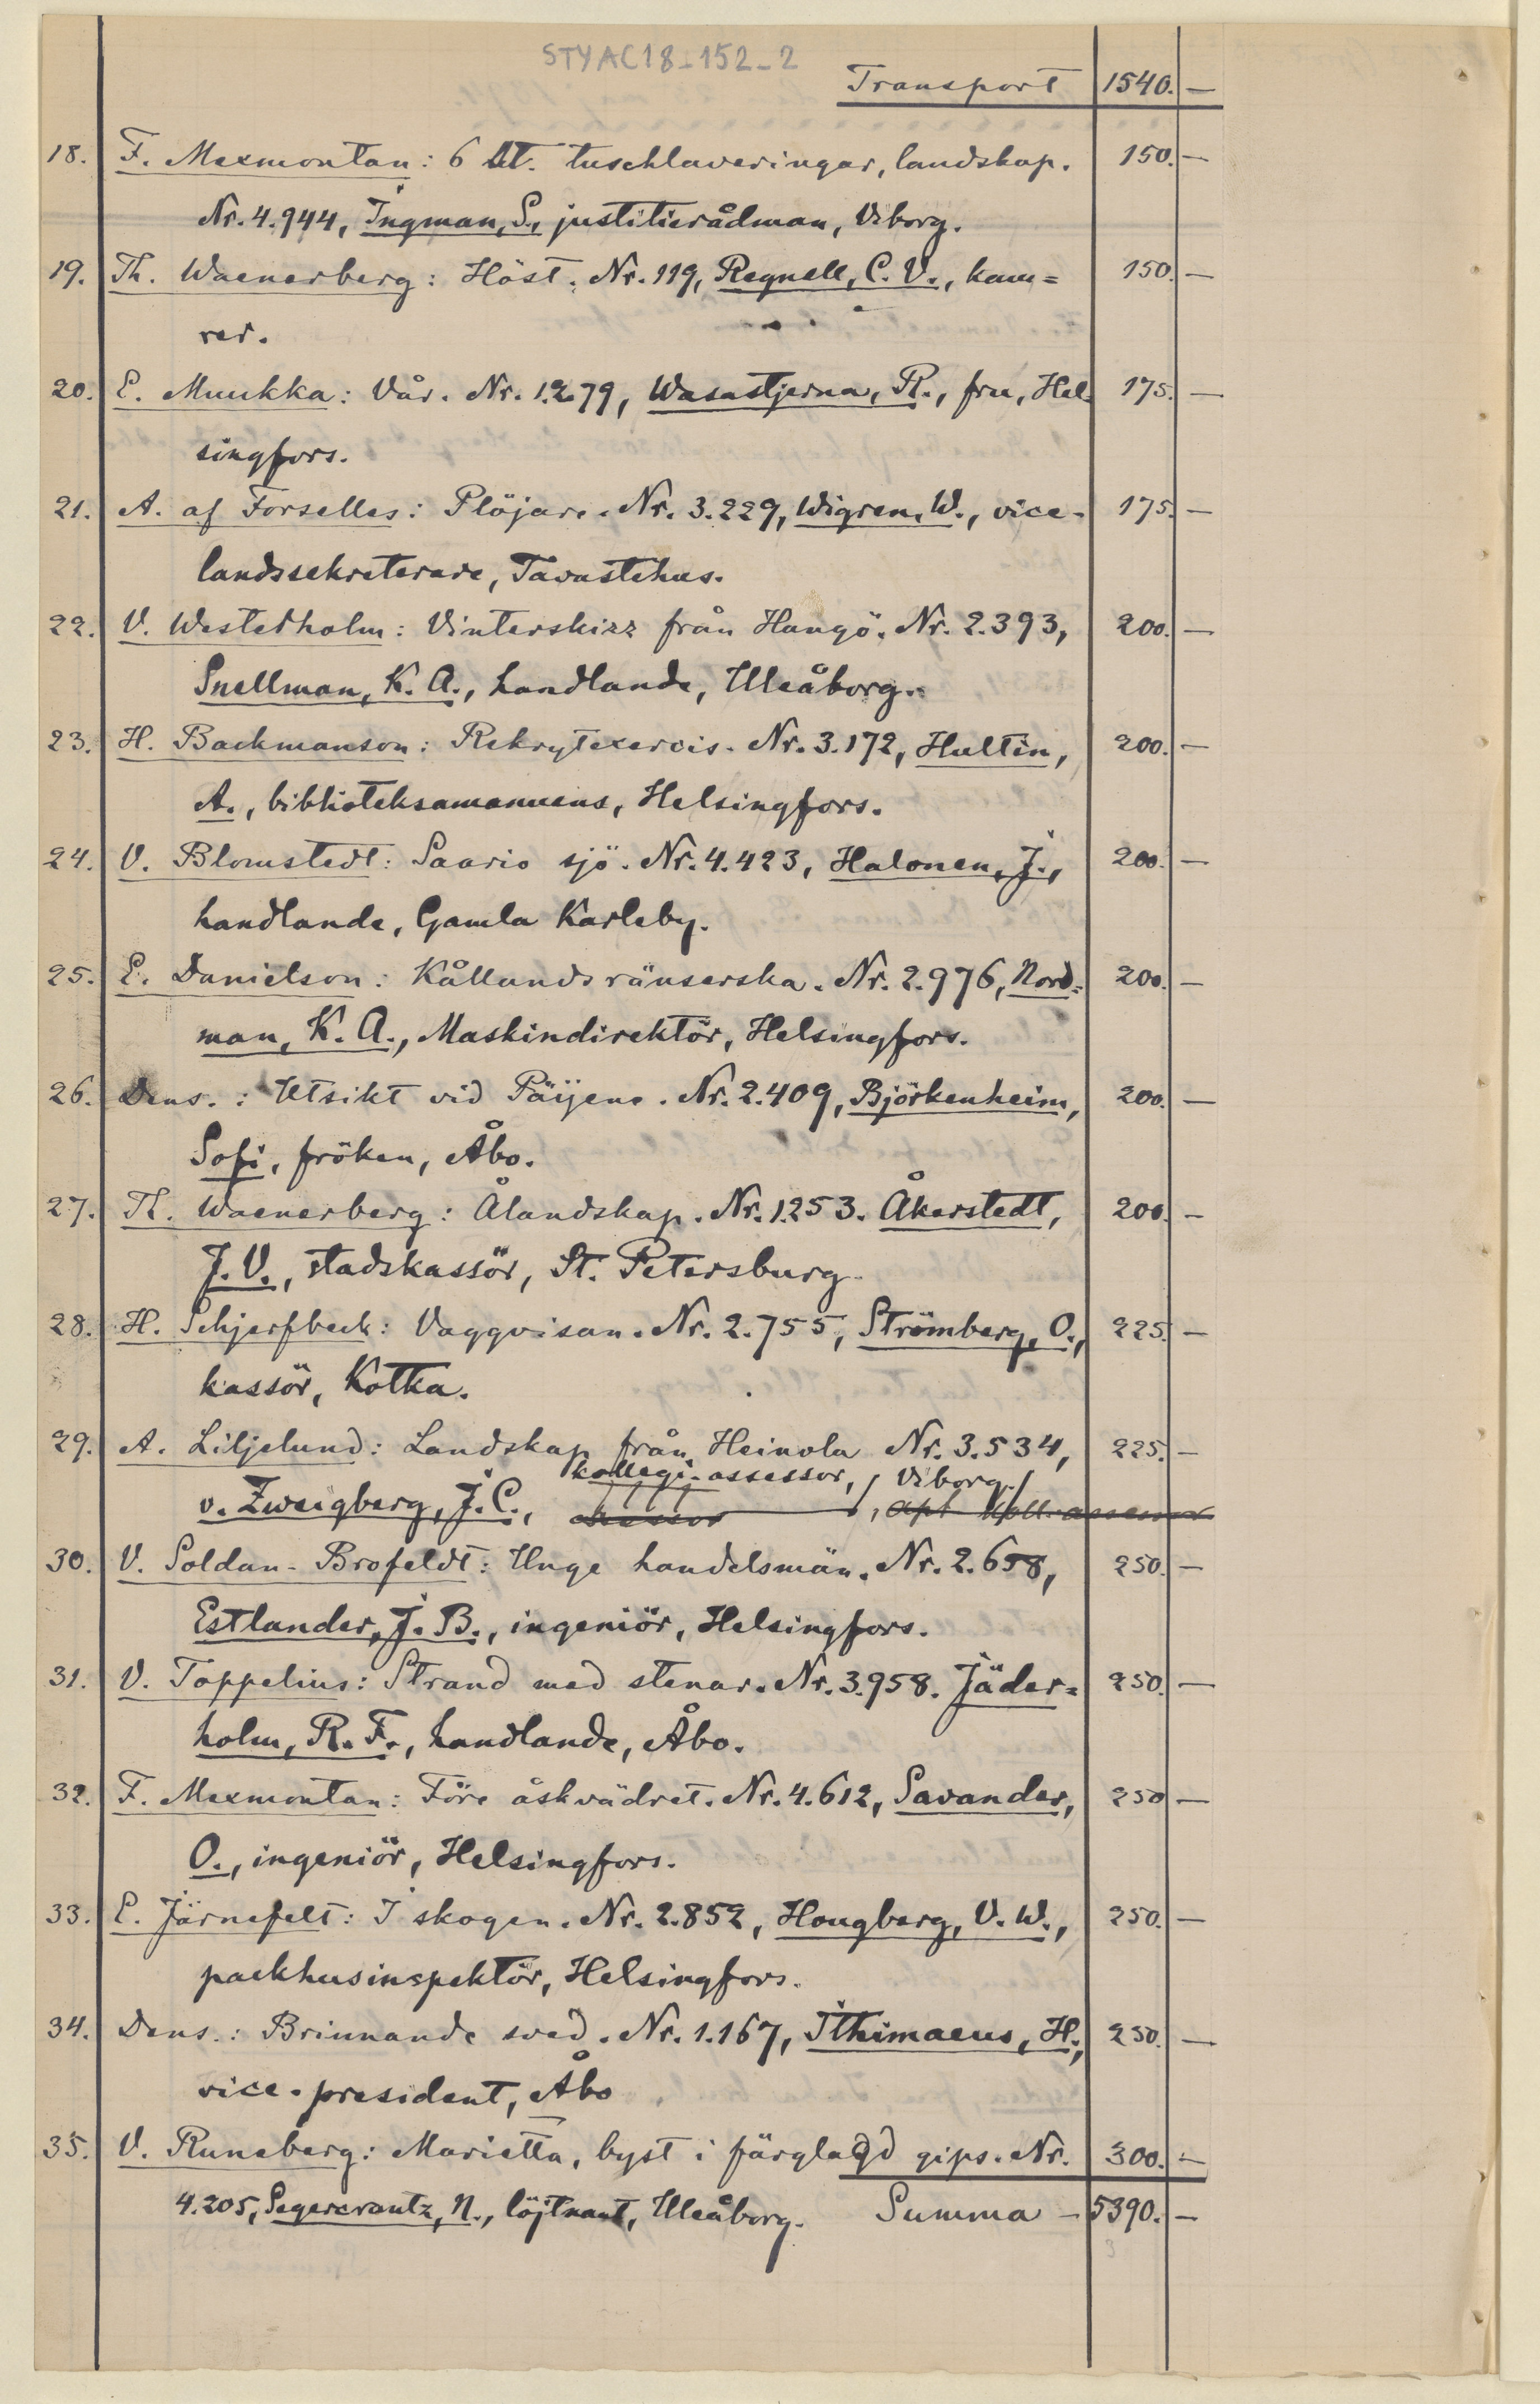 STYAC18-152-2
Transport 1540. —
18. F. Mexmontan: 6 st. tuschlaveringar, landskap. 150. —
Nr. 4.944, Ingman, S., justitierådman, Viborg.
19. Th. Waenerberg: Höst. Nr. 119, Regnell, C. V., kam= 150. —
rer.
20. E. Muukka: Vår. Nr. 1.279, Wasastjerna, R., fru, Hel- 175. —
singfors.
21. A. af Forselles: Plöjare. Nr. 3.229, Wigren, W., vice- 175. —
landssekreterare, Tavastehus.
22. V. Westerholm: Vinterskizz från Hangö. Nr. 2.393, 200. —
Snellman, K. A., handlande, Uleåborg.
23. H. Backmanson: Rekrytexercis. Nr. 3.172, Hultin, 200. —
A., biblioteksamanuens, Helsingfors.
24. V. Blomstedt: Saario sjö. Nr. 4.423, Halonen, J., 200. —
handlande, Gamla Karleby.
25. E. Danielson: Kållandsränserska. Nr. 2.976, Nord= 200. —
man, K. A., Maskindirektör, Helsingfors.
26. Dens.: Utsikt vid Päijene. Nr. 2.409, Björkenheim, 200. —
Sofi, fröken, Åbo.
27. Th. Waenerberg: Ålandskap. Nr. 1.253. Åkerstedt, 200. —
J. V., stadskassör, St. Petersburg.
28. H. Schjerfbeck: Vaggvisan. Nr. 2.755, Strömberg, O., 225. —
kassör, Kotka.
29. A. Liljelund: Landskap från Heinola Nr. 3.534, 225. —
kollegi-assessor, Viborg.
v. Zweigberg, J. C., assessor, apt koll. assessor
30. V. Soldan-Brofeldt: Unge handelsmän. Nr. 2.658, 250. —
Estlander, J. B., ingeniör, Helsingfors.
31. V. Toppelius: Strand med stenar. Nr. 3.958. Jäder= 250. —
holm, R. F., handlande, Åbo.
32. F. Mexmontan: Före åskvädret. Nr. 4.612, Savander, 250 —
O., ingeniör, Helsingfors.
33. E. Järnefelt: I skogen. Nr. 2.852, Hougberg, V. W., 250. —
packhusinspektör, Helsingfors.
34. Dens.: Brinnande sved. Nr. 1.167, Ithimaeus, H., 250. —
vice-president, Åbo
35. V. Runeberg: Marietta, byst i färglagd gips. Nr. 300. —
4.205, Segercrantz, N., löjtnant, Uleåborg. Summa — 5390. —